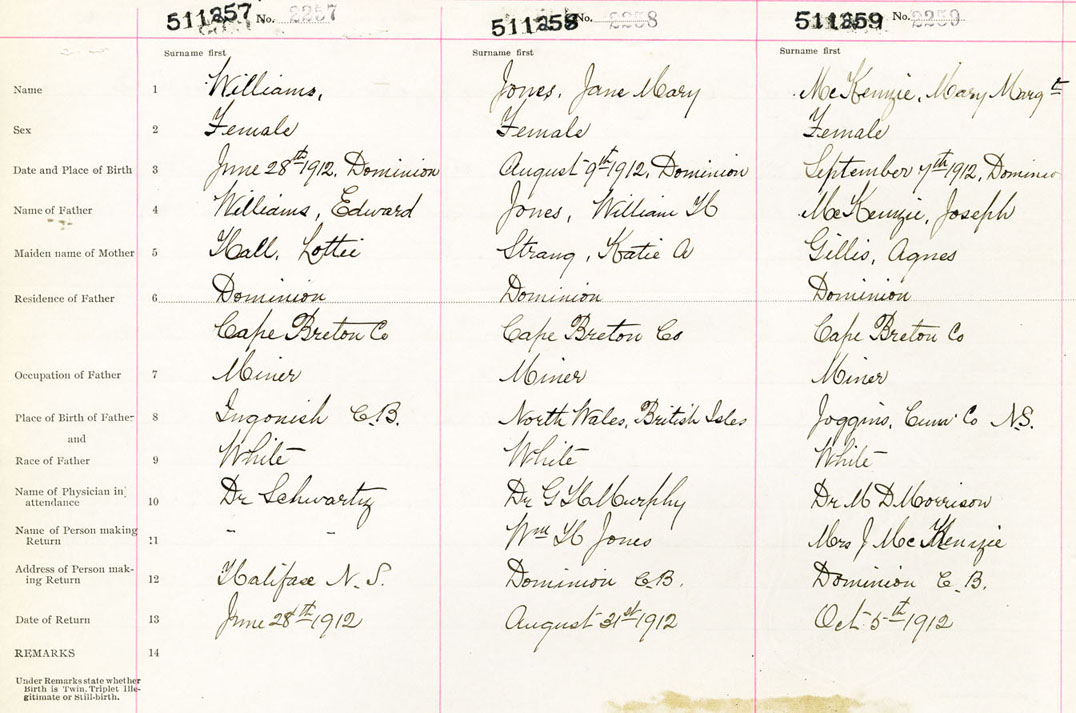 511257 No. 2257 511258 No. 2258 511259 No. 2259
Surname first Surname first Surname first
Name 1 Williams, Jones, Jane Mary McKenzie, Mary Margt
Sex 2 Female Female Female
Date and Place of Birth 3 June 28th 1912, Dominion August 9th 1912, Dominion September 7th 1912, Dominion
Name of Father 4 Williams, Edward Jones, William H McKenzie, Joseph
Maiden name of Mother 5 Hall, Lottie Strang, Katie A Gillis, Agnes
Residence of Father 6 Dominion Dominion Dominion
Cape Breton Co Cape Breton Co Cape Breton Co
Occupation of Father 7 Miner Miner Miner
Place of Birth of Father 8 Ingonish C.B. North Wales, British Isles Joggins, Cum Co N.S.
and
Race of Father 9 White White White
Name of Physician in
attendance 10 Dr Schwartz Dr G H Murphy Dr M D Morrison
Name of Person making
Return 11 " " Wm H Jones Mrs J McKenzie
Address of Person mak-
ing Return 12 Halifax N.S. Dominion C.B. Dominion C.B.
Date of Return 13 June 28th 1912 August 31st 1912 Oct 5th 1912
REMARKS 14
Under Remarks state whether
Birth is Twin, Triplet Ille-
gitimate or Still-birth.